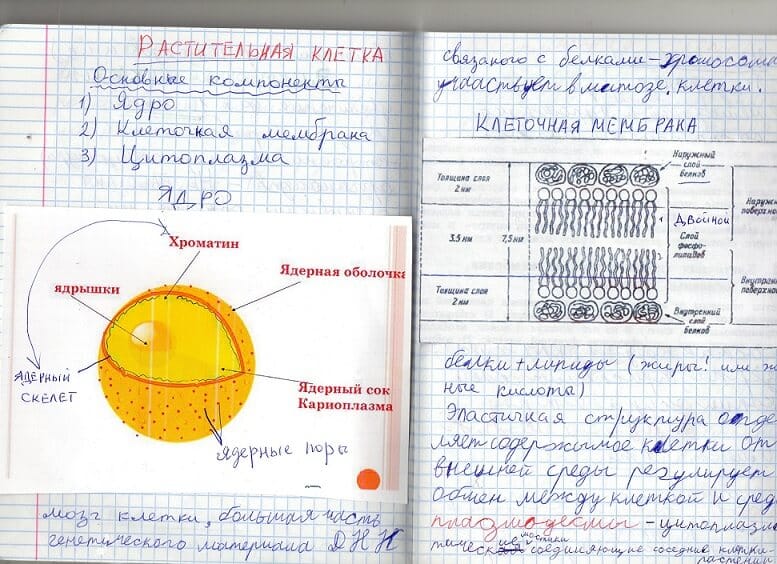 РАСТИТЕЛЬНАЯ КЛЕТКА
Основные компоненты
1) Ядро
2) Клеточная мембрана
3) Цитоплазма
ЯДРО
Хроматин
Ядерная оболочка
ядрышки
Ядерный сок
Кариоплазма
ЯДЕРНЫЙ
СКЕЛЕТ
ядерные поры
мозг клетки, большая часть
генетического материала ДНК
связаного с белками - хромосома
участвует в митозе клетки.
КЛЕТОЧНАЯ МЕМБРАКА
Толщина слоя
2 нм
3.5 нм
7,5 нм
Толщина слоя
2 нм
Наружный
слой
белков
Двойной
Слой
фосфо-
липидов
Внутренний
слой
белков
Наруж
поверхно
Внутрен
поверхно
белки + липиды (жиры! или ж
ные кислоты)
Эластичная структура отде
ляет содержимое клетки от
внешней среды регулирует
обмен между клеткой и сред
плазмодесмы - цитоплазма
мостики
соединяющие соседние клетки
растений